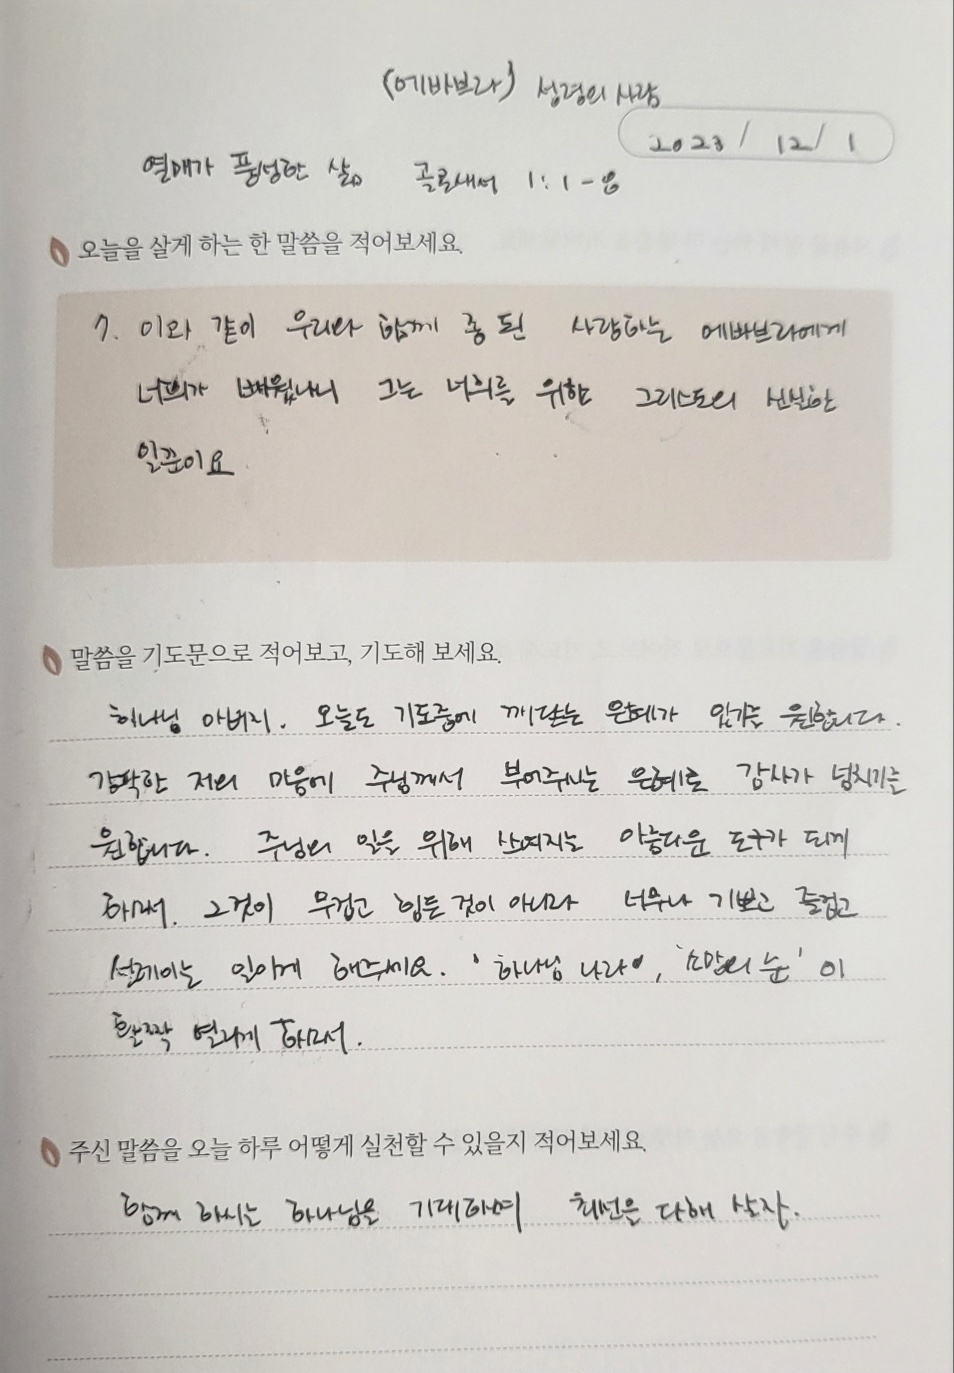 (에바브라) 성경의 사람
2023 / 12 / 1
열매가 풍성한 삶 골로새서 1:1-8
오늘을 살게 하는 한 말씀을 적어보세요.
7. 이와 같이 우리와 함께 종 된 사랑하는 에바브라에게
너희가 배웠나니 그는 너희를 위한 그리스도의 신실한
일꾼이요
말씀을 기도문으로 적어보고, 기도해 보세요.
하나님 아버지. 오늘도 기도중에 깨닫는 은혜가 있기를 원합니다.
강팍한 저의 마음에 주님께서 부어주시는 은혜로 감사가 넘치기를
원합니다. 주님의 일을 위해 쓰여지는 아름다운 도구가 되게
하소서. 그것이 무겁고 힘든 것이 아니라 너무나 기쁘고 즐겁고
설레이는 일이게 해주세요. '하나님 나라', '소망의 눈' 이
활짝 열리게 하소서.
주신 말씀을 오늘 하루 어떻게 실천할 수 있을지 적어보세요.
함께 하시는 하나님을 기대하며 최선을 다해 살자.